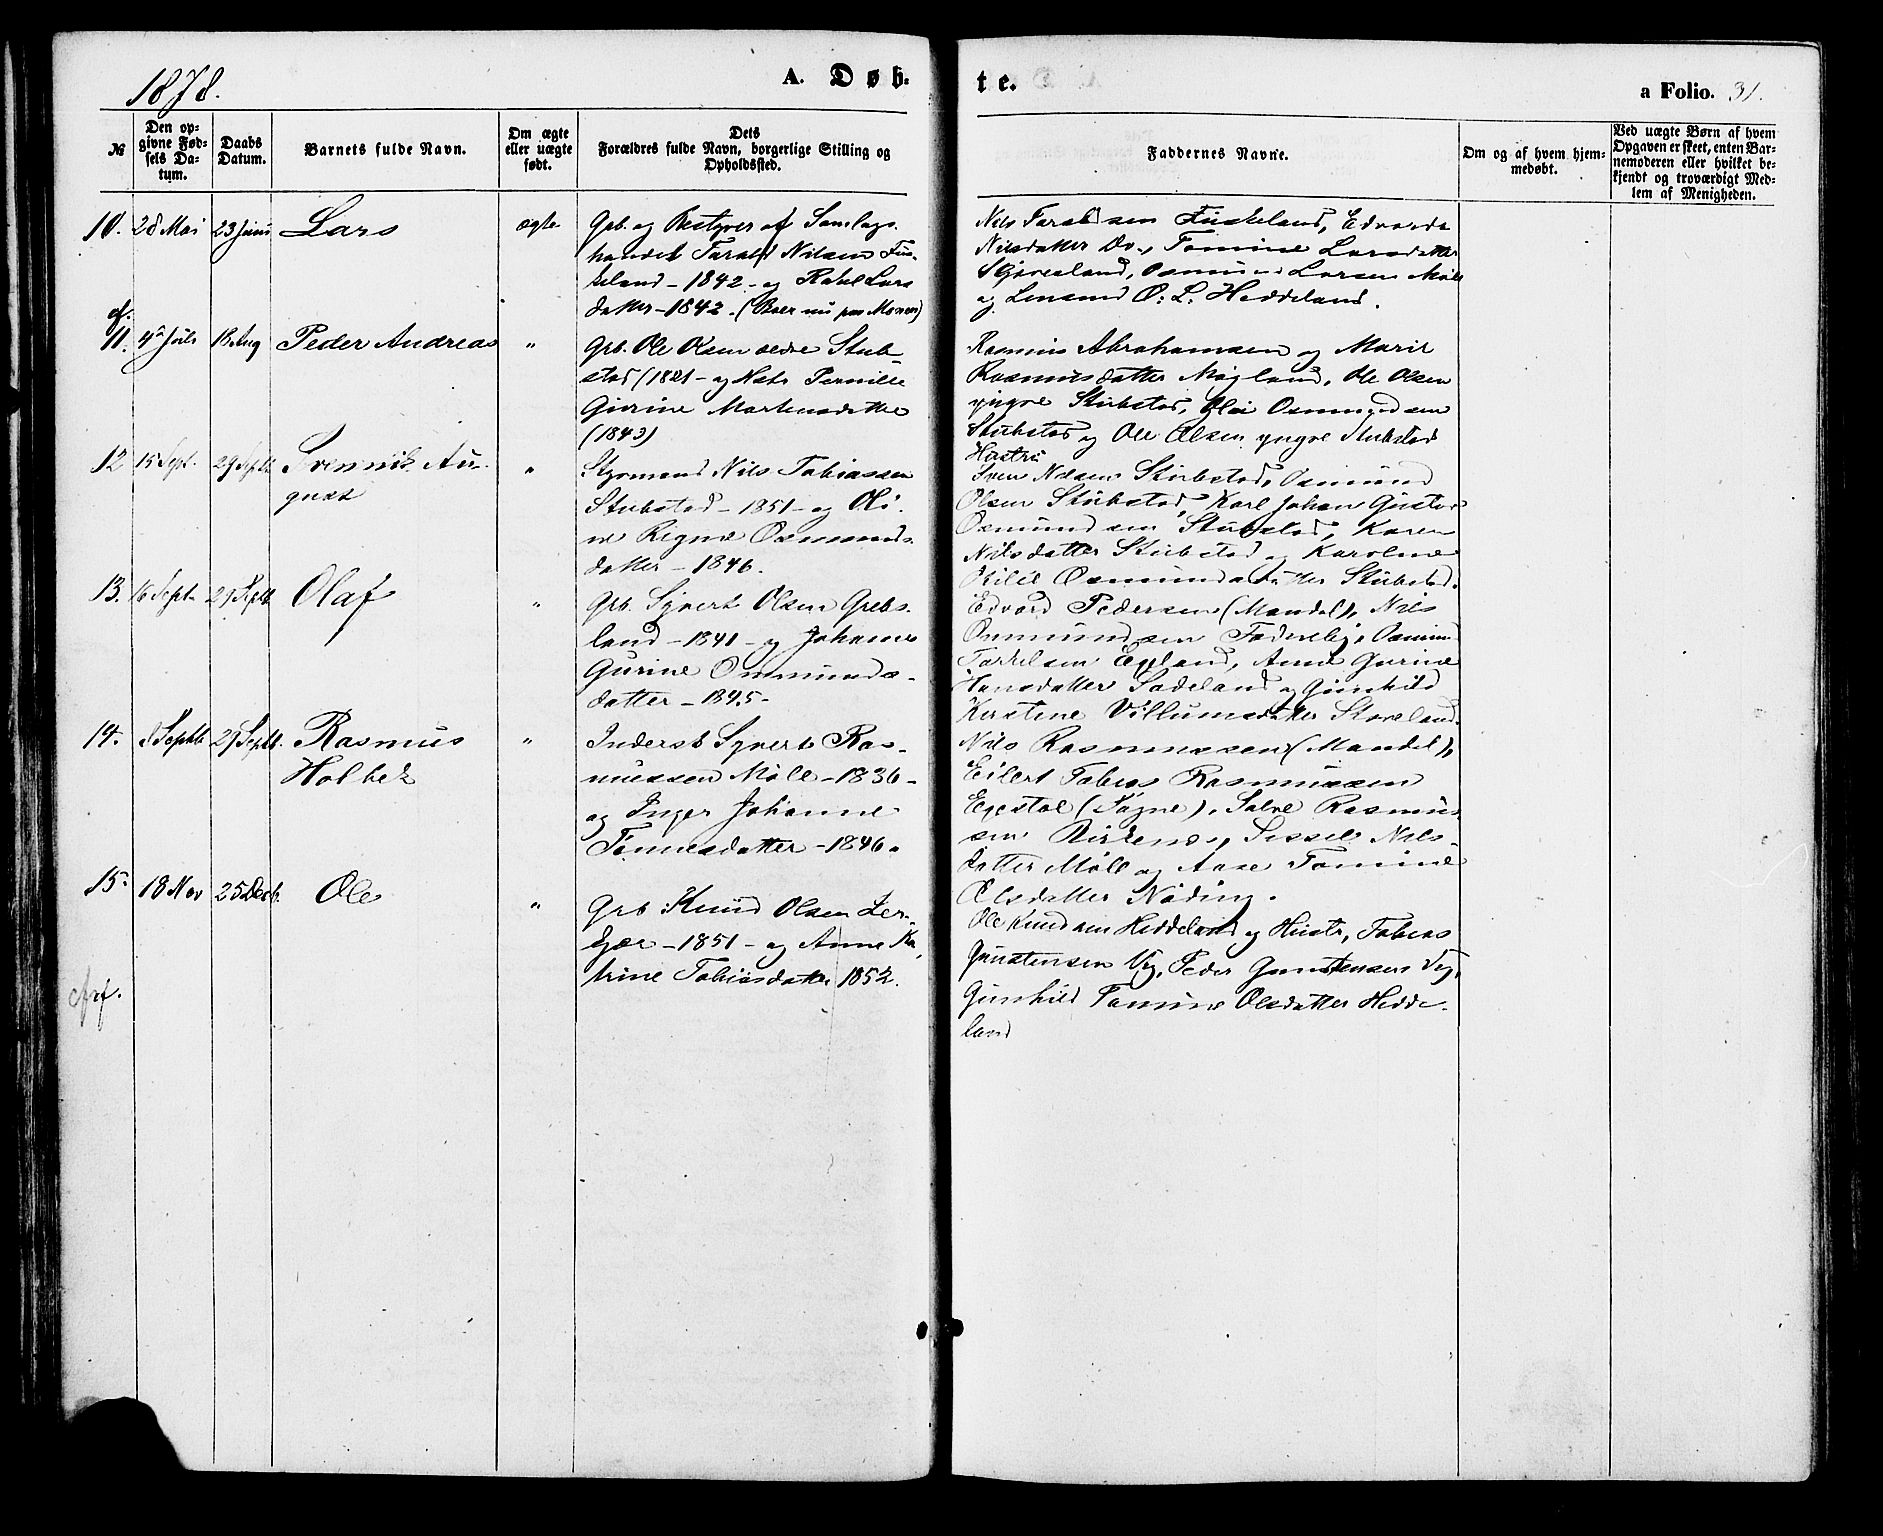 1878.
A. Døb-
te.
a Folio. 31.
№
Den op-
givne Fød-
sels Da-
tum.
Daabs
Datum.
Barnets fulde Navn.
Om ægte
eller uægte
født.
Dets
Forældres fulde Navn, borgerlige Stilling og
Opholdssted.
Faddernes Navne.
Om og af hvem hjem-
medøbt.
Ved uægte Børn af hvem
Opgaven er skeet, enten Bar-
nemoderen eller hvilket be-
kjendt og troværdigt Med-
lem af Menigheden.
10. 28 Mai 23 Juni Lars ægte
Grb. og Bestyrer af Samlags-
handel Tarald Nilsen Fus-
keland - 1842 - og Rakel Lars
datter - 1842. (Boer nu paa Monen)
Nils Taraldsen Fuskeland, Edvarda
Nilsdatter Do., Tomine Larsdatter
Skjævesland, Osmund Larsen Møll
og Lensmd O. L. Heddeland.
11. 4de Juli 18 Aug Peder Andreas "
Grb. Ole Olsen ældre Stub-
stad (1821 - og Hstr Pernille
Gurine Martensdatter
(1843)
Rasmus Abrahamsen og Marie
Rasmusdatter Møgland, Ole Olsen
yngre Stubstad, Osmundsen
Stubstad og Ole Olsen yngre Stubstad
Hustru
12 15 Sept. 29 Septb Svennik Au-
gust "
Styrmand Nils Tobiassen
Stubstad - 1851 - og Oli-
ne Regine Osmunds-
datter - 1846.
Sven Nilsen Stubstad, Osmund
Olsen Stubstad, Karl Johan Gustav
Osmundsen Stubstad, Karen
Nilsdatter Stubstad og Karoline
Otilie Osmundsdatter Stubstad.
13. 16 Septb 29 Septb Olaf "
Grb. Syvert Olsen Grebs-
land - 1841 - og Johanne
Gurine Ommunds-
datter - 1845 -
Edvard Pedersen (Mandal), Nils
Ommundsen Osmund
Tarkelsen Egeland, Anne Gurine
Hansdatter Sødeland og Gunhild
Kirstine Villumsdatter Stoveland.
14. Septb 29 Septb. Rasmus
Holbek "
Inderst Syvert Ras-
mussen Møll - 1836 -
og Inger Johanne
Tønnesdatter - 1846.
Nils Rasmussen (Mandal),
Eilert Tobias Rasmussen
Egestøl (Søgne), Salve Rasmus-
sen Birkenes, Sissel Nils-
datter Møll og Aase Tomine
Olsdatter Nøding.
15. 18 Nov 25 Decb. Ole "
Grb Knud Olsen Ler-
kjær - 1851 - og Anne Ka-
trine Tobiasdatter 1852.
Ole Knudsen Heddeland og Hustr, Tobias
Gunstensen Vej, Peder Gunstensen Vej,
Gunhild Tomine Olsdatter Hedde-
land